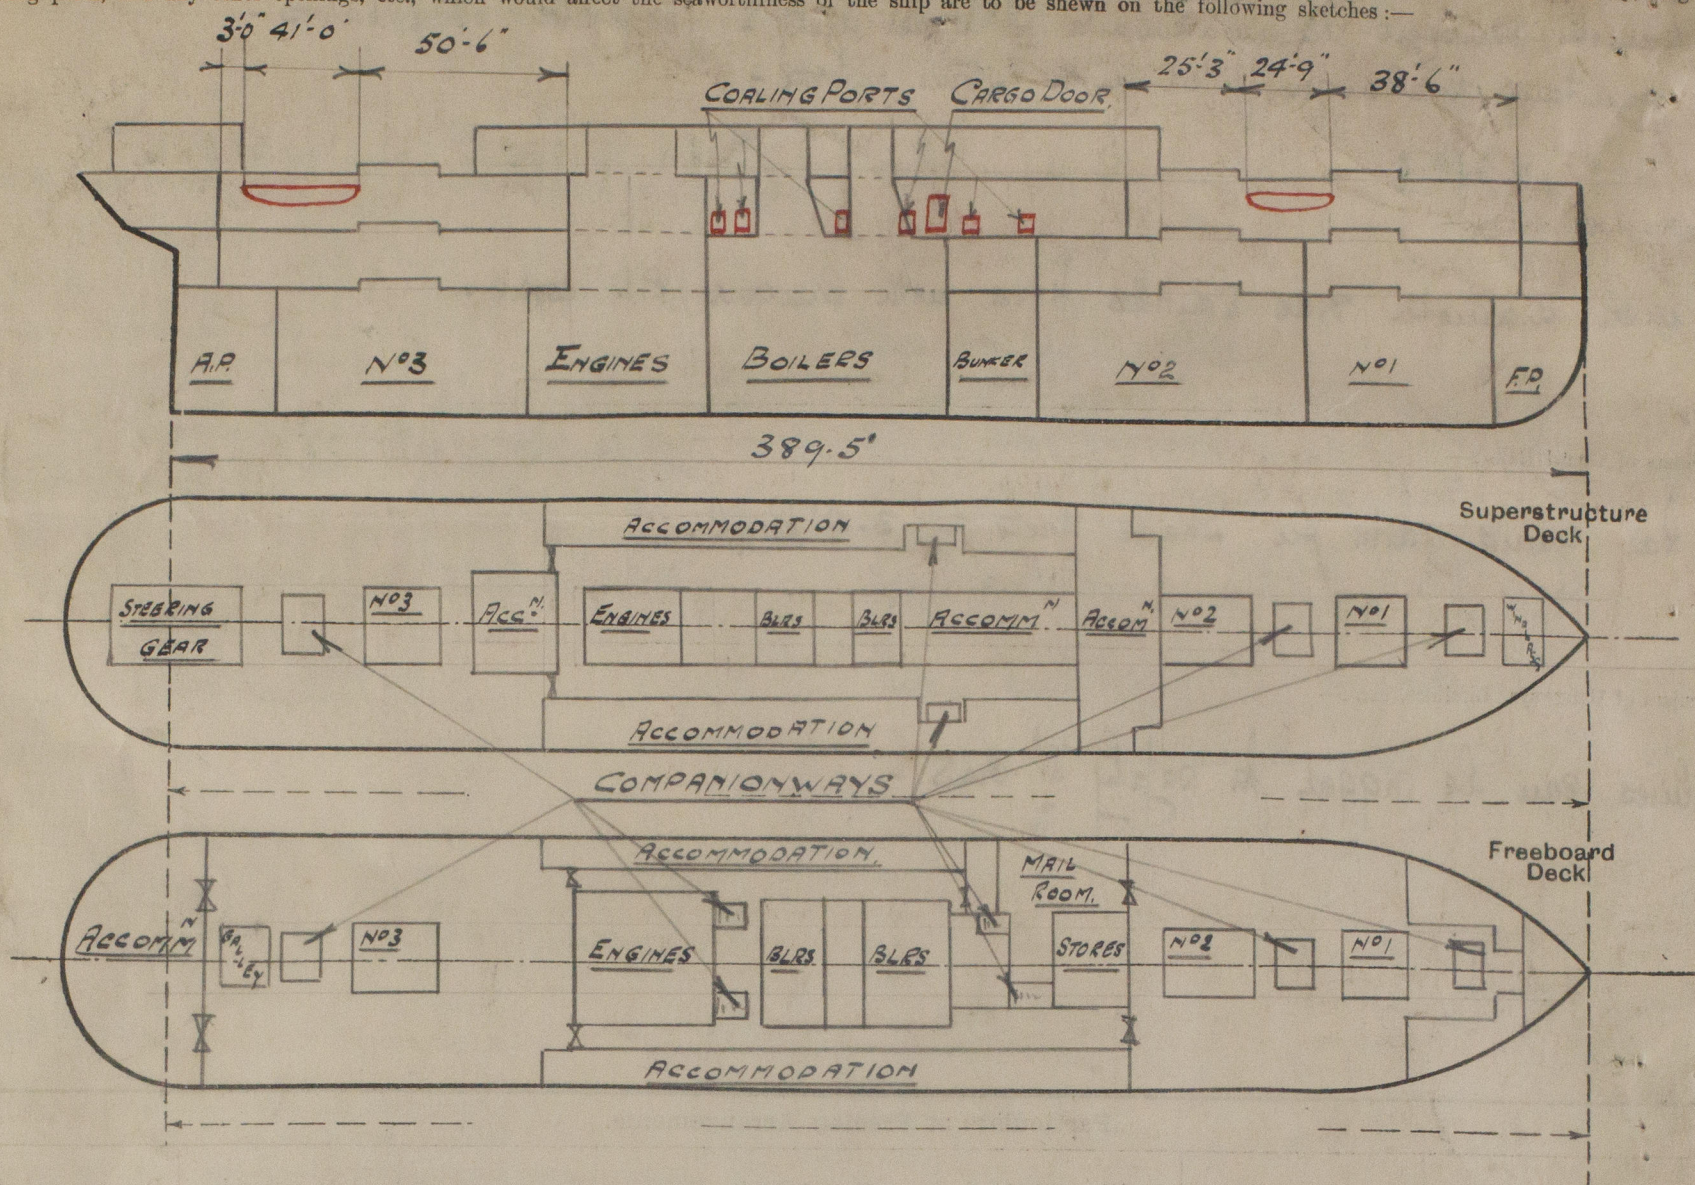 which would affect the seaworthiness of the ship are to be shewn on the following sketches :—
3'-0" 41'-0" 50'-6" 25'-3" 24'-9" 38'-6"
COALING PORTS CARGO DOOR.
A.P. Nº3 ENGINES BOILERS BUNKER Nº2 Nº1 F.P.
389.5'
Superstructure
Deck
ACCOMMODATION
STEERING
GEAR
Nº3 ACCN. ENGINES BLRS BLRS ACCOMMN ACCOMN. Nº2 Nº1
ACCOMMODATION
COMPANIONWAYS
Freeboard
Deck
ACCOMMODATION.
MAIL
ROOM.
ACCOMMN GALLEY Nº3 ENGINES BLRS BLRS STORES Nº2 Nº1
ACCOMMODATION